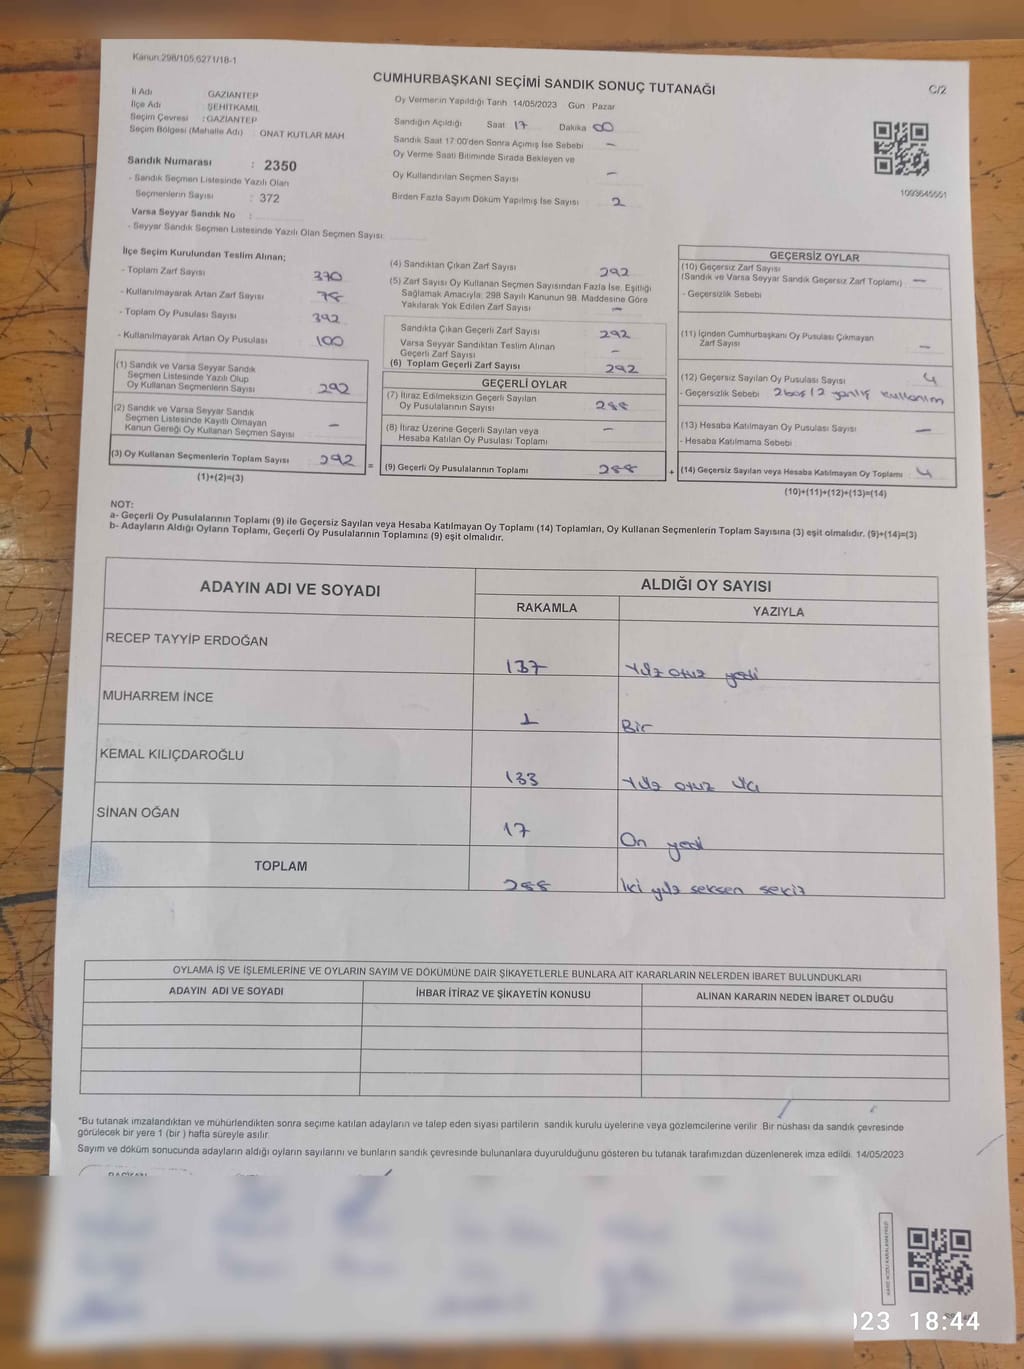 Kanun:298/105,6271/18-1
CUMHURBAŞKANI SEÇİMİ SANDIK SONUÇ TUTANAĞI
C/2
İl Adı GAZİANTEP
İlçe Adı ŞEHİTKAMİL
Seçim Çevresi : GAZİANTEP
Seçim Bölgesi (Mahalle Adı) ONAT KUTLAR MAH
Sandık Numarası : 2350
- Sandık Seçmen Listesinde Yazılı Olan
Seçmenlerin Sayısı : 372
Varsa Seyyar Sandık No :
- Seyyar Sandık Seçmen Listesinde Yazılı Olan Seçmen Sayısı:
Oy Vermenin Yapıldığı Tarih 14/05/2023 Gün : Pazar
Sandığın Açıldığı Saat 17 Dakika 00
Sandık Saat 17:00'den Sonra Açılmış İse Sebebi -
Oy Verme Saati Bitiminde Sırada Bekleyen ve
Oy Kullandırılan Seçmen Sayısı -
Birden Fazla Sayım Döküm Yapılmış İse Sayısı 2
1093645551
İlçe Seçim Kurulundan Teslim Alınan;
- Toplam Zarf Sayısı 370
- Kullanılmayarak Artan Zarf Sayısı 78
- Toplam Oy Pusulası Sayısı 392
- Kullanılmayarak Artan Oy Pusulası 100
(1) Sandık ve Varsa Seyyar Sandık
Seçmen Listesinde Yazılı Olup
Oy Kullanan Seçmenlerin Sayısı 292
(2) Sandık ve Varsa Seyyar Sandık
Seçmen Listesinde Kayıtlı Olmayan
Kanun Gereği Oy Kullanan Seçmen Sayısı -
(3) Oy Kullanan Seçmenlerin Toplam Sayısı 292
(1)+(2)=(3)
=
(4) Sandıktan Çıkan Zarf Sayısı 292
(5) Zarf Sayısı Oy Kullanan Seçmen Sayısından Fazla İse, Eşitliği
Sağlamak Amacıyla; 298 Sayılı Kanunun 98. Maddesine Göre
Yakılarak Yok Edilen Zarf Sayısı -
Sandıkta Çıkan Geçerli Zarf Sayısı 292
Varsa Seyyar Sandıktan Teslim Alınan
Geçerli Zarf Sayısı -
(6) Toplam Geçerli Zarf Sayısı 292
GEÇERLİ OYLAR
(7) İtiraz Edilmeksizin Geçerli Sayılan
Oy Pusulalarının Sayısı 288
(8) İtiraz Üzerine Geçerli Sayılan veya
Hesaba Katılan Oy Pusulası Toplamı -
(9) Geçerli Oy Pusulalarının Toplamı 288
+
GEÇERSİZ OYLAR
(10) Geçersiz Zarf Sayısı
(Sandık ve Varsa Seyyar Sandık Geçersiz Zarf Toplamı) -
- Geçersizlik Sebebi
(11) İçinden Cumhurbaşkanı Oy Pusulası Çıkmayan
Zarf Sayısı -
(12) Geçersiz Sayılan Oy Pusulası Sayısı 4
- Geçersizlik Sebebi 2 boş / 2 yanlış kullanım
(13) Hesaba Katılmayan Oy Pusulası Sayısı -
- Hesaba Katılmama Sebebi
(14) Geçersiz Sayılan veya Hesaba Katılmayan Oy Toplamı 4
(10)+(11)+(12)+(13)=(14)
NOT:
a- Geçerli Oy Pusulalarının Toplamı (9) ile Geçersiz Sayılan veya Hesaba Katılmayan Oy Toplamı (14) Toplamları, Oy Kullanan Seçmenlerin Toplam Sayısına (3) eşit olmalıdır. (9)+(14)=(3)
b- Adayların Aldığı Oyların Toplamı, Geçerli Oy Pusulalarının Toplamına (9) eşit olmalıdır.
ADAYIN ADI VE SOYADI ALDIĞI OY SAYISI
RAKAMLA YAZIYLA
RECEP TAYYİP ERDOĞAN 137 Yüz otuz yedi
MUHARREM İNCE 1 Bir
KEMAL KILIÇDAROĞLU 133 Yüz otuz üç
SİNAN OĞAN 17 On yedi
TOPLAM 288 İki yüz seksen sekiz
OYLAMA İŞ VE İŞLEMLERİNE VE OYLARIN SAYIM VE DÖKÜMÜNE DAİR ŞİKAYETLERLE BUNLARA AİT KARARLARIN NELERDEN İBARET BULUNDUKLARI
ADAYIN ADI VE SOYADI İHBAR İTİRAZ VE ŞİKAYETİN KONUSU ALINAN KARARIN NEDEN İBARET OLDUĞU
*Bu tutanak imzalandıktan ve mühürlendikten sonra seçime katılan adayların ve talep eden siyasi partilerin sandık kurulu üyelerine veya gözlemcilerine verilir. Bir nüshası da sandık çevresinde
görülecek bir yere 1 (bir ) hafta süreyle asılır.
Sayım ve döküm sonucunda adayların aldığı oyların sayılarını ve bunların sandık çevresinde bulunanlara duyurulduğunu gösteren bu tutanak tarafımızdan düzenlenerek imza edildi. 14/05/2023
023 18:44